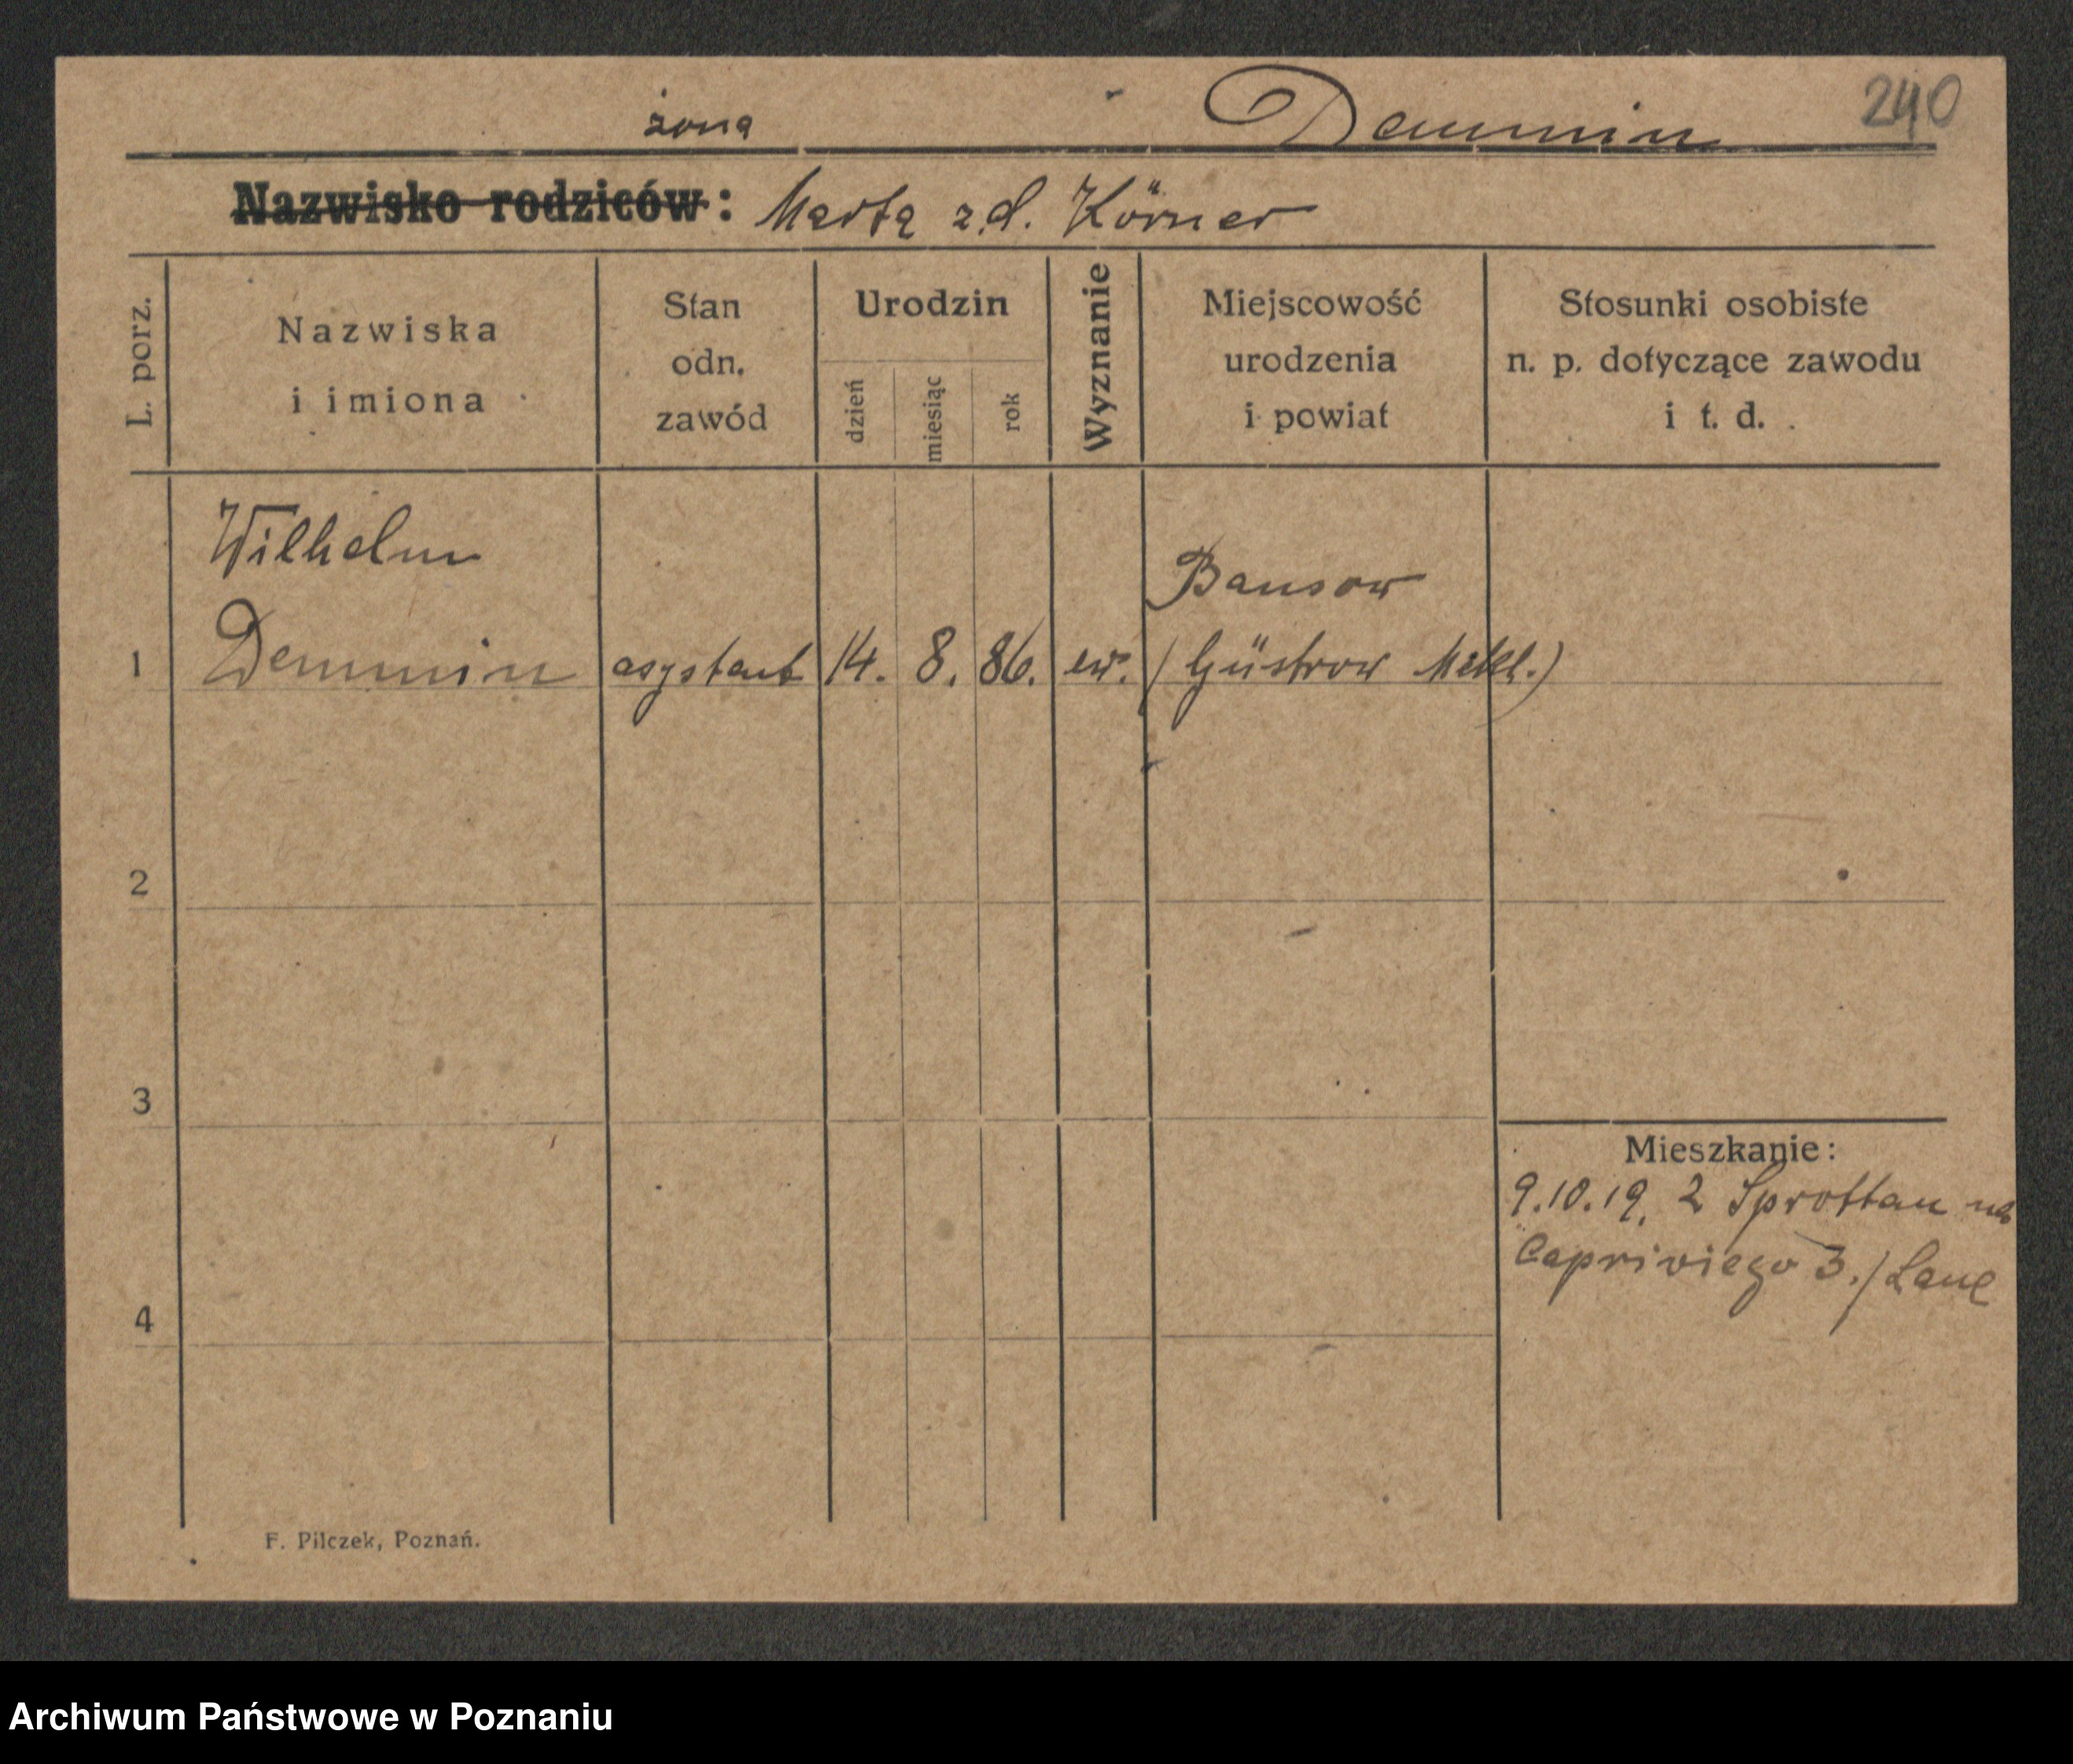 240
żona Demmin
Nazwisko rodziców: Marta z.d. Körner
L. porz.
Nazwiska
i imiona
Stan
odn.
zawód
Urodzin
dzień
miesiąc
rok
Wyznanie
Miejscowość
urodzenia
i powiat
Stosunki osobiste
n. p. dotyczące zawodu
i t. d.
Wilhelm
Bansow
1 Demmin asystent 14. 8. 86. ew. (Güstrow Mekl.)
2
3
4
Mieszkanie:
9.10.19. z Sprottau na
Capriviego 3./
F. Pilczek, Poznań.
Archiwum Państwowe w Poznaniu